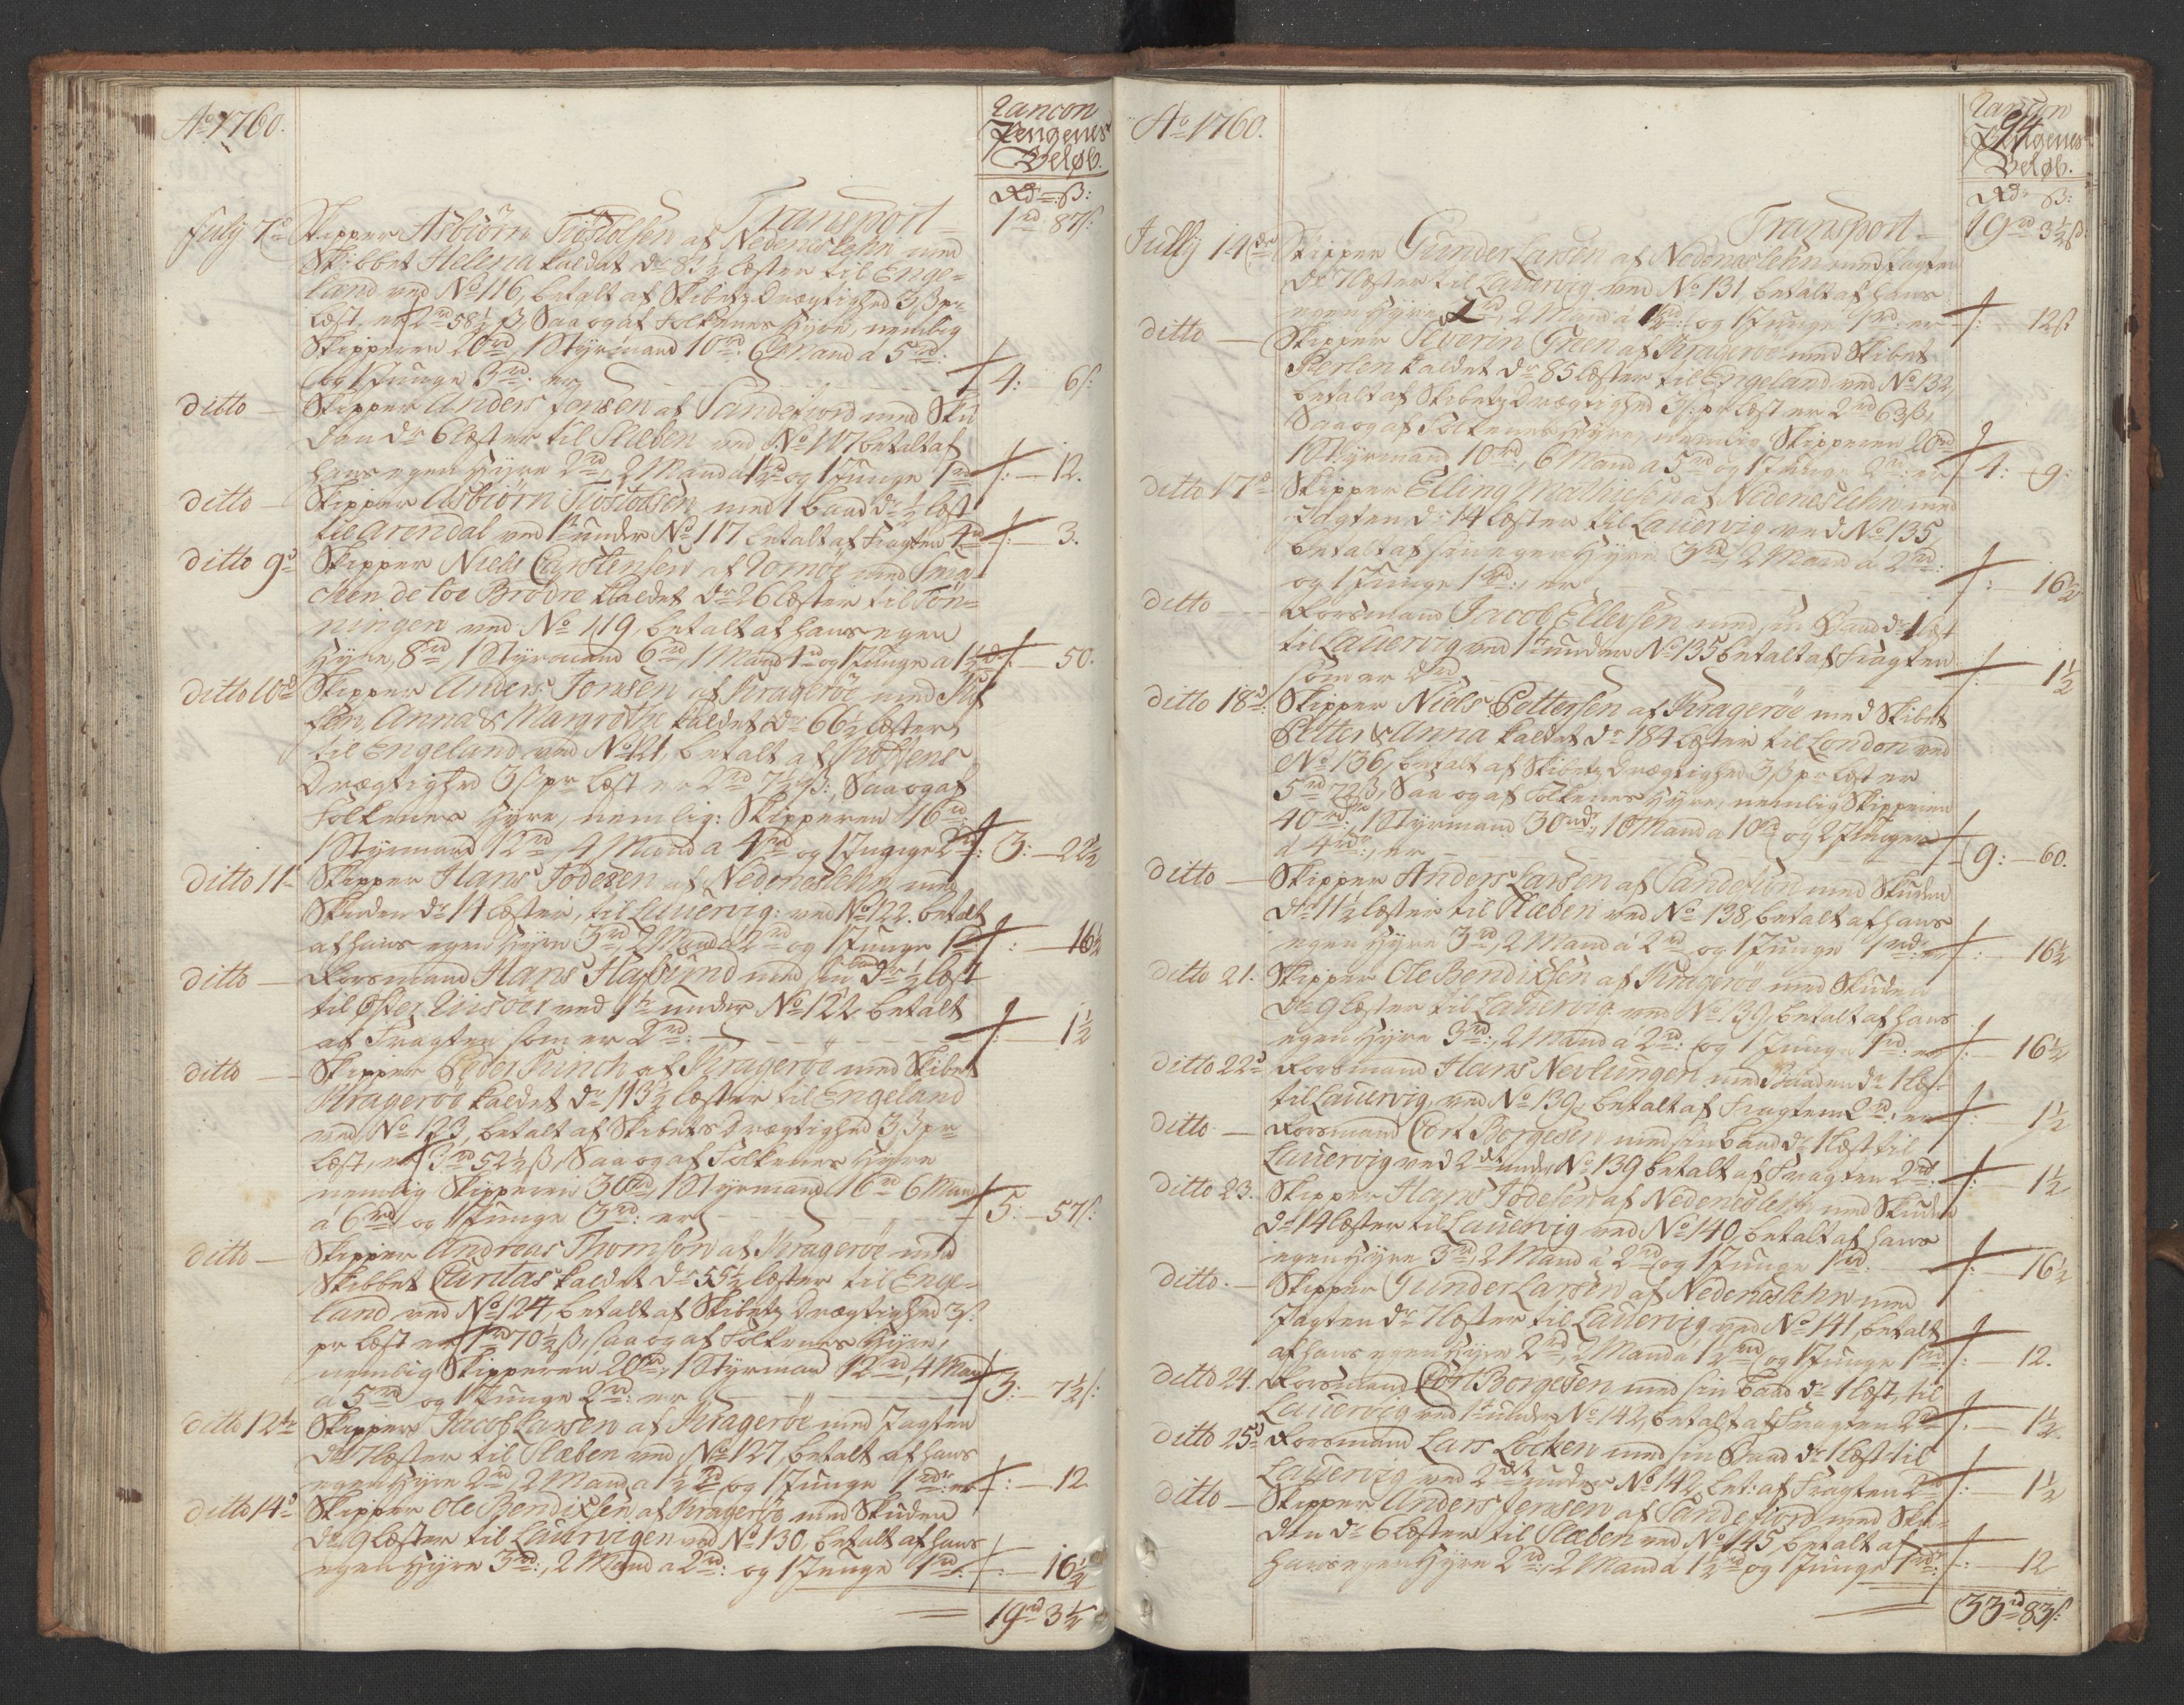 Ao 1760.
Rancon
Pengenes
Beløb.
Rdr: ß:
Transport 1rd: 87ß:
July 7d Skipper Asbiørn Tostolsen af Nedenæslehn med
Skibbet Helena kaldet dr 83½ læster til Enge-
land ved No 116, betalt af Skibetz Drægtighed 3ß pr
læst, er 2rd 58½ ß, Saa og af Folkenes Hyre, nemlig
Skipperen 20rd, 1 Styrmand 10rd: 6 Mand á 5rd:
og 1 Junge 3rd: er 4: 6ß:
ditto Skipper Anders Jonsen af Sandefiord med Sku
dan dr 6 læster til Slæben ved No 117 betalt af
hans egen Hyre 2rd, 2 Mand á 1½rd og 1 Junge 1rd : 12.
ditto Skipper Asbiørn Tostolsen med 1 baad dr ½ læst
til Arendal ved 1t under No 117 betalt af Fragten 4rd : 3.
ditto 9d Skipper Niels Carstensen af Romøe med Sma-
cken de toe Brødre kaldet dr 26 læster til Tøn-
ningen ved No 119, betalt af hans egen
Hyre, 8rd, 1 Styrmand 6rd, 1 Mand 4rd og 1 Junge a 1½rd 50.
ditto 10d Skipper Anders Jonsen af Kragerøe med
Anna & Margrethe kaldet dr 66½ læster
til Engeland ved No 121, betalt af
Drægtighed 3ß pr læst er 2rd 7½ß:, Saa og af
Folkenes Hyre, nemlig: Skipperen 16rd:
1 Styrmand 12rd, 4 Mand a 4rd og 1 Junge 2rd: 3: 22½
ditto 11t Skipper Hans Todesen af Nedeneslehn med
Skuden dr 14 læster, til Lauervig: ved No 122. betalt
af hans egen Hyre 3rd, 2 Mand á 2rd og 1 Junge 1rd : 16½
ditto Rorsmand Hans Haslund med sin baad dr ½ læst
til Øster Riisøer ved 1t under No 122 betalt
af Fragten som er 2rd: 1½
ditto Skipper Peder Finch af Kragerøe med Skibet
Kragerøe kaldet dr 113½ læster til Engeland
ved No 123, betalt af Skibets Drægtighed 3ß pr
læst, er 3rd 52½ ß, Saa og af Folkenes Hyre
nemlig Skipperen 30rd, 1 Styrmand 16rd 6 Mand
á 6rd og 1 Junge 3rd: er 5: 57ß:
ditto Skipper Andreas Thomson af Kragerøe med
Skibbet Caritas kaldet dr 55½ læster til Enge-
land ved No 124, betalt af Skibetz Drægtighed 3ß
pr læst er 1rd 70½ß, saa og af Folkenes Hyre,
nemlig Skipperen 20rd, 1 Styrmand 12rd, 4 Mand
á 5rd og 1 Junge 2rd: er 3: 7½ß:
ditto 12te Skipper Jacob Larsen af Kragerøe med Jagten
dr 7 læster til Slæben ved No 127, betalt af hans
egen Hyre 2rd, 2 Mand a 1½rd og 1 Junge 1rd: er : 12
ditto 14d Skipper Ole Bendixsen af Kragerøe med Skuden
dr 9 læster til Lauervigen ved No 130, betalt af hans
egen Hyre 3rd:, 2 Mand a 2rd: og 1 Junge 1rd: : 16½
19rd 3½
Ao 1760.
94
Rancon
Pengenes
Beløb.
Rdr ß:
Transport 19rd 3½ß:
Jully 14de Skipper Gunder Larsen af Nedenæslehn med Jagten
dr 7 læster til Lauervig ved No 131, betalt af hans
egen Hyre 2rd, 2 Mand a 1½rd: og 1 Junge 1rd: er : 12ß
ditto Skipper Severin Træen af Kragerøe med Skibet
Perlen kaldet dr 85 læster til Engeland ved No 132,
betalt af Skibetz Drægtighed 3ß: pr læst er 2rd 63ß,
Saa og af Folkenes Hyre, nemlig Skipperen 20rd
1 Styrmand 10rd:, 6 Mand a 5rd og 1 Junge 2rd: er 4: 9:
ditto 17d Skipper Elling Mathiesen af Nedenæslehn med
Jagten dr 14 læster til Lauervig ved No 135,
betalt af sin egen Hyre 3rd, 2 Mand á 2rd:
og 1 Junge 1rd:, er : 16½
ditto Rorsmand Jacob Ellefsen med sin Baad dr 1 læst
til Lauervig ved 1t under No 135 betalt af Fragten
som er 2rd: 1½
ditto 18d: Skipper Niels Pettersen af Kragerøe med Skibet
Petter & Anna kaldet dr 184 læster til London ved
No 136, betalt af Skibetz Drægtighed 3ß pr læst er
5rd 72ß, Saa og af Folkenes Hyre, nemlig Skipperen
40rd: 1 Styrmand 30rd:, 10 Mand a 10rd og 2 Junger
á 4rd:, er 9: 60.
ditto Skipper Anders Larsen af Sandefiord med Skuden
dr 11½ læster til Slæben ved No 138, betalt af hans
egen Hyre 3rd, 2 Mand á 2rd og 1 Junge 1rd: er : 16½
ditto 21. Skipper Ole Bendixsen af Kragerøe med Skuden
dr 9 læster til Lauervig ved No 139, betalt af hans
egen Hyre 3rd:, 2 Mand á 2rd: og 1 Junge 1rd: er : 16½
ditto 22d Rorsmand Hans Nevlungen med Baaden dr 1 læst
til Lauervig, ved No 139, betalt af Fragten 2rd: er : 1½
ditto Rorsmand Cort Borgesen med sin baad dr 1 læst til
Lauervig ved 2det under No 139 betalt af Fragten 2rd : 1½
ditto 23. Skipper Hans Todesen af Nedeneslehn med Skuden
dr 14 læster til Lauervig ved No 140, betalt af hans
egen Hyre 3rd, 2 Mand á 2rd og 1 Junge 1rd : 16½
ditto. Skipper Gunder Larsen af Nedenæslehn med
Jagten dr 7 læster til Lauervig ved No 141, betalt
af hans egen Hyre 2rd, 2 Mand a 1½rd og 1 Junge 1rd: : 12.
ditto 24. Rorsmand Cort Borgesen med sin baad dr 1 læst, til
Lauervig ved 1t under No 142, betalt af Fragten 2rd : 1½
ditto 25d Rorsmand Lars Løcken med sin Baad dr 1 læst til
Lauervig ved 2det under No 142, bet: af Fragten 2rd : 1½
ditto Skipper Anders Jensen af Sandefiord med Sku-
den dr 6 læster til Slæben ved No 145 betalt af
hans egen Hyre 2rd:, 2 Mand á 1½rd og 1 Junge 1rd: : 12
33rd 83ß: